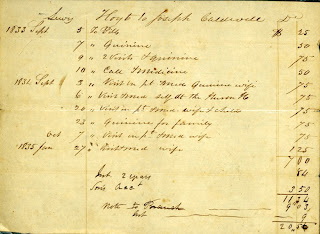 Lewry Hoyt to Joseph Caldwell Dr
1833 Sept 5 To Pills $ 25
7 " Quinine 50
9 " 2 Visits & Quinine 75
10 " Call & Medicine 50
1834 Sept 3 " Visit in pt. & med Quinine wife 75
6 " Visit & med self at the 75
20 " Visit in pt. & med wife & child 75
23 " Quinine for family 75
Oct 7 " Visit in pt. & med wife 75
1835 Jan 27 " Visit & med wife 1.25
7 00
Int. 2 years 84
Son's acct 3 50
11 34
Note to 9 03
Int 9
20 56